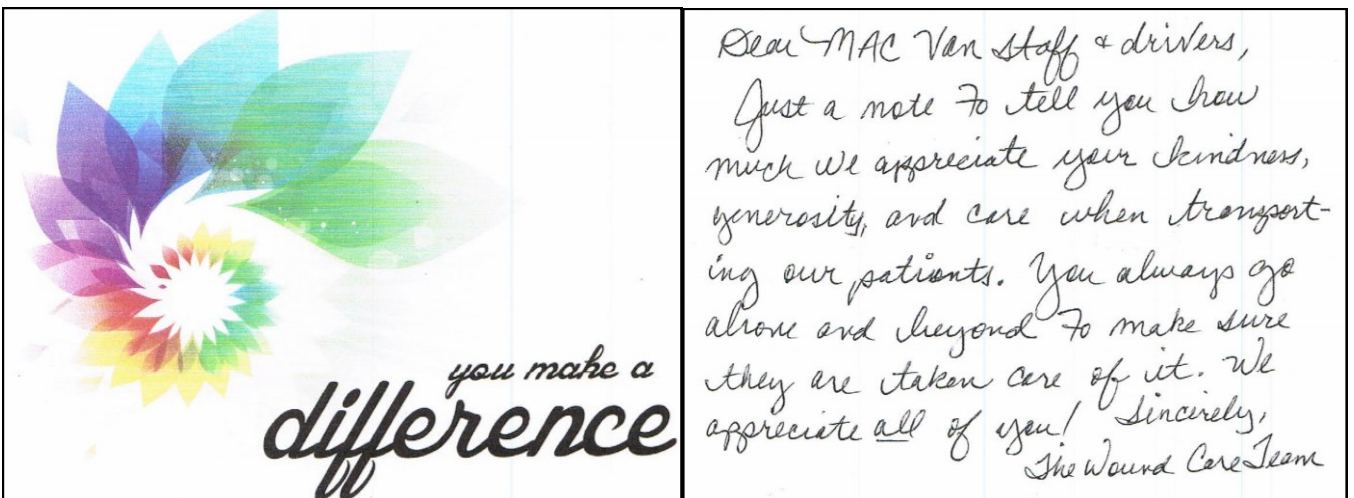 you make a
difference
Dear MAC Van Staff & drivers,
Just a note to tell you how
much we appreciate your kindness,
generosity, and care when transport-
ing our patients. You always go
above and beyond to make sure
they are taken care of it. We
appreciate all of you! Sincerely,
The Wound Care Team